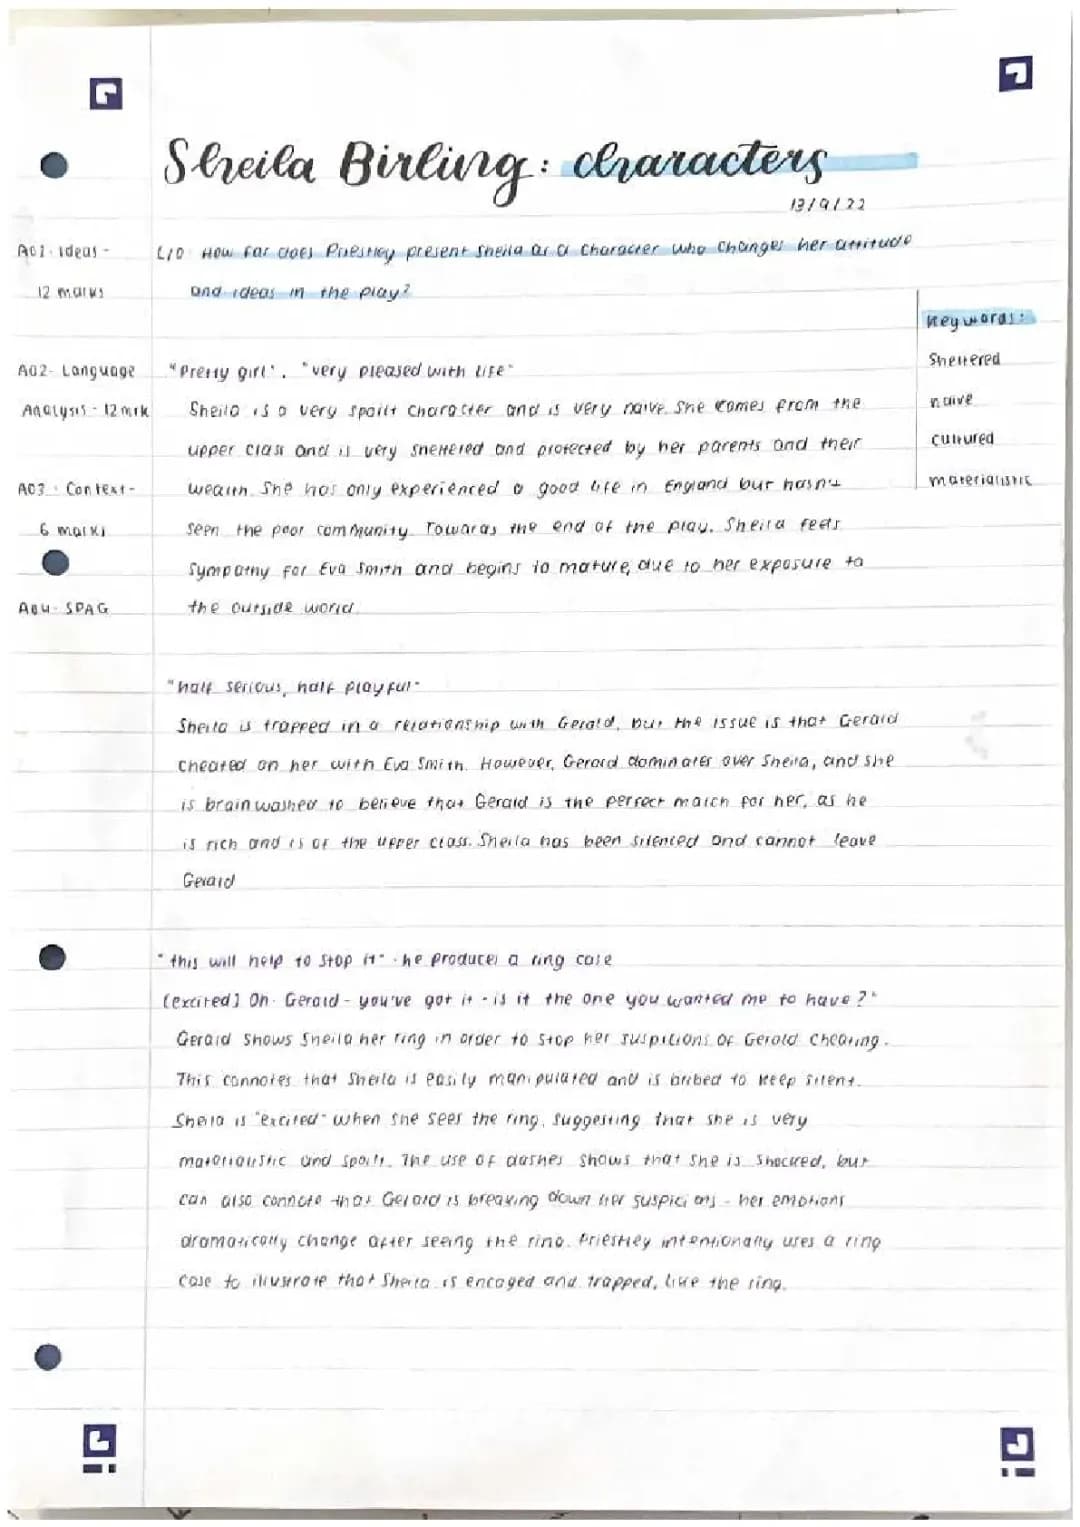 Sheila Birling: characters
13/9/22
AO1: ideas -
12 marks
L/O: How far does Priestley present Sheila as a character who changes her attitude
and ideas in the play?
Keywords:
Sheltered
naive
cultured
materialistic
AO2- Language
Analysis - 12 mrk
AO3: Context-
6 marks
AO4- SPAG
"Pretty girl". "very pleased with life"
Sheila is a very spoilt character and is very naive. She comes from the
upper class and is very sheltered and protected by her parents and their
wealth. She has only experienced a good life in England but hasn't
seen the poor community. Towards the end of the play, Sheila feels
sympathy for Eva Smith and begins to mature, due to her exposure to
the outside world.
"half serious, half playful"
Sheila is trapped in a relationship with Gerald, but the issue is that Gerald
cheated on her with Eva Smith. However, Gerard dominates over Sheila, and she
is brainwashed to believe that Gerald is the perfect match for her, as he
is rich and is of the upper class. Sheila has been silenced and cannot leave
Gerald
"this will help to stop it" - he produces a ring case
[excited] Oh - Gerald - you've got it - is it the one you wanted me to have?"
Gerald shows Sheila her ring in order to stop her suspicions of Gerald cheating.
This connotes that Sheila is easily manipulated and is bribed to keep silent.
Sheila is "excited" when she sees the ring, suggesting that she is very
materialistic and spoilt. The use of dashes shows that she is shocked, but
can also connote that Gerald is breaking down her suspicions - her emotions
dramatically change after seeing the ring. Priestley intentionally uses a ring
case to illustrate that Sheila is encaged and trapped, like the ring.